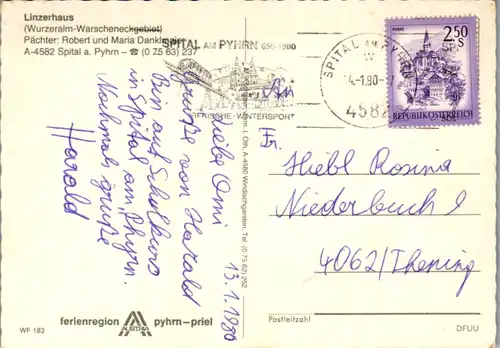 Linzerhaus
(Wurzeralm-Warscheneckgebiet)
Pächter: Robert und Maria Dankl
A-4582 Spital a. Pyhrn – ☎ (0 75 63) 237
SPITAL AM PYHRN 650-1900
FRISCHE · WINTERSPORT
SPITAL AM PYHRN
4582
2,50
S
REPUBLIK ÖSTERREICH
13.1.1980
Liebe Omi
Grüße von Harald
Bin auf Schikurs
in Spital am Phyrn.
Nochmals grüße
Harald
An
Fr.
Hiebl Rosina
Niederbuch 9
4062/Thening
A-4580 Windischgarsten, Tel. (0 75 62) 252
Postleitzahl
WF 183
ferienregion
AUSTRIA
pyhrn-priel
DFUU